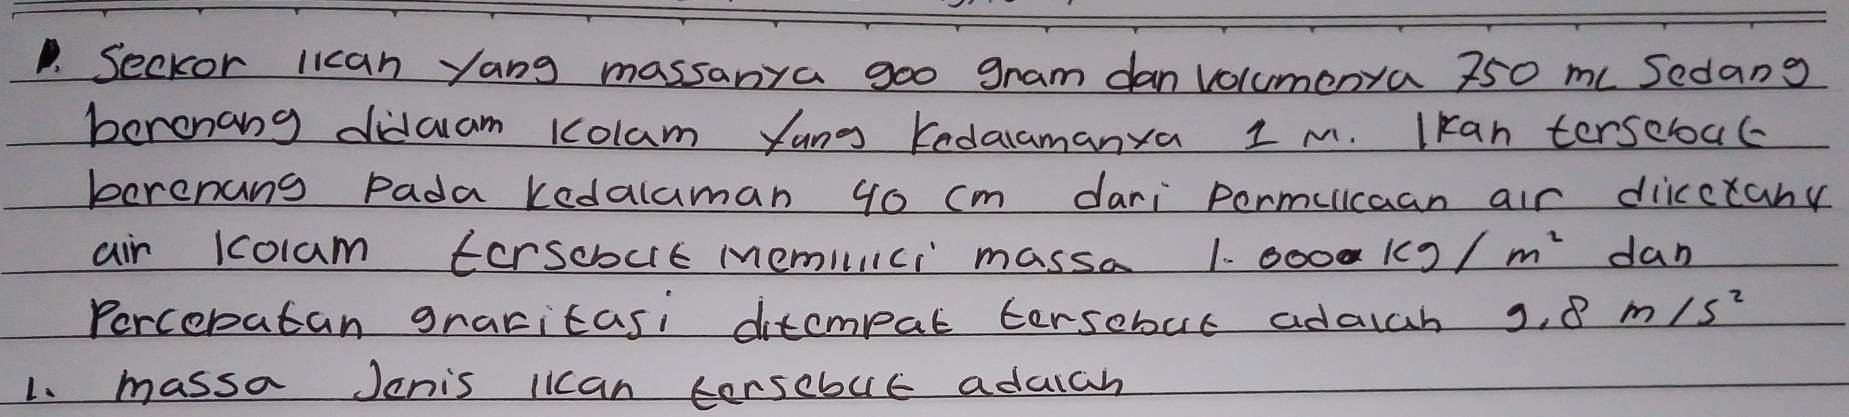 1. Seekor ikan yang massanya 900 gram dan volumenya 750 mL Sedang
berenang didalam kolam yang kedalamanya 1 M. Ikan tersebut
berenang Pada kedalaman 40 cm dari Permukaan air diketahi
air kolam tersebut memiliki massa 1.000 kg/m² dan
Percepatan gravitasi ditempat tersebut adalah 9,8 m/s²
1. massa Jenis ikan tersebut adalah